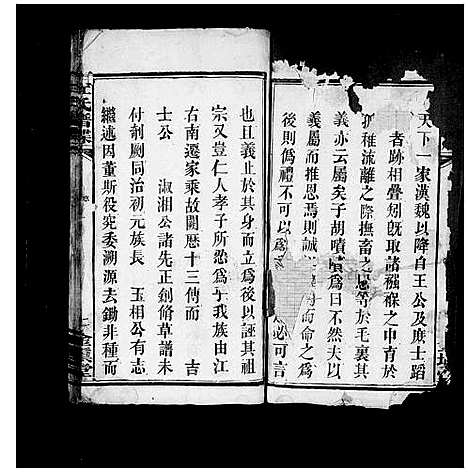 天下一家漢魏以降自王公及庶士蹈
者跡相疊矧旣取諸襁褓之中育於
孤稚流離之際撫畜之恩等於毛裏其
義亦云屬矣子胡嘖嘖爲曰不然夫以
義屬而推恩焉則誠 而命之爲
後則僞禮不可以 必可言
也且義止於其身而立爲後以誣其祖
宗又豈仁人孝子所忍爲乎我族由江
右南遷家乘故闕歷十三傳而 吉
士公 淑湘公諸先正創脩草譜未
付剞劂同治初元族長 玉相公有志
繼述因董斯役究委溯源去鋤非種而